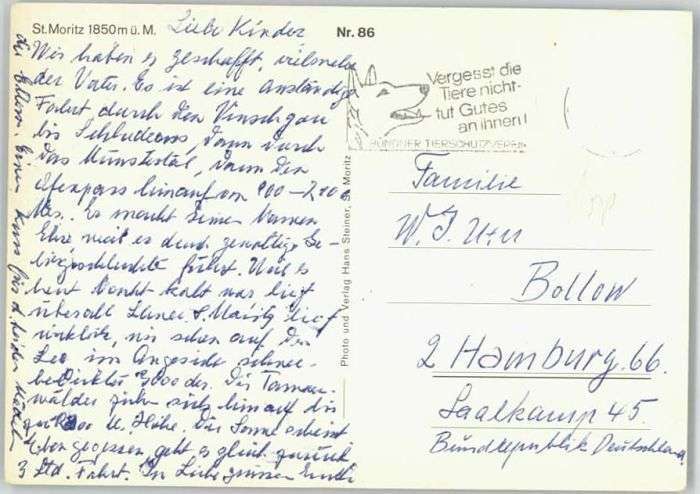 St. Moritz 1850 m ü. M.
Nr. 86
Liebe Kinder
Wir haben es geschafft, vielmehr
der Vater. Es ist eine anständige
Fahrt durch den Vinschgau
bis Schluderns, dann durch
das Münstertal, dann den
Ofenpass hinauf von 900 - 2
Mts. Es macht seinen Namen
Ehre weil es durch gewaltige Ge-
birgsschluchte führt. Weil es
heut Nacht kalt war liegt
überall Schnee. S. Moritz liegt
wirklich, wir sehen auf der
im Angesicht schnee-
bedeckter 3000 der. Die Tannen-
wälder ziehn sich hinauf bis
zur M. Höhe. Die Sonne scheint
gegessen geht es gleich zurück
3 Std. Fahrt. In Liebe grüssen Euch
die Eltern. Einen Kuss für d. Mädel
Vergesst die
Tiere nicht-
tut Gutes
an ihnen!
BÜNDNER TIERSCHUTZVEREIN
Photo und Verlag Hans Steiner, St. Moritz
Familie
Bollow
2 Hamburg. 66.
Saalkamp 45.
Bundrepublik Deutschland